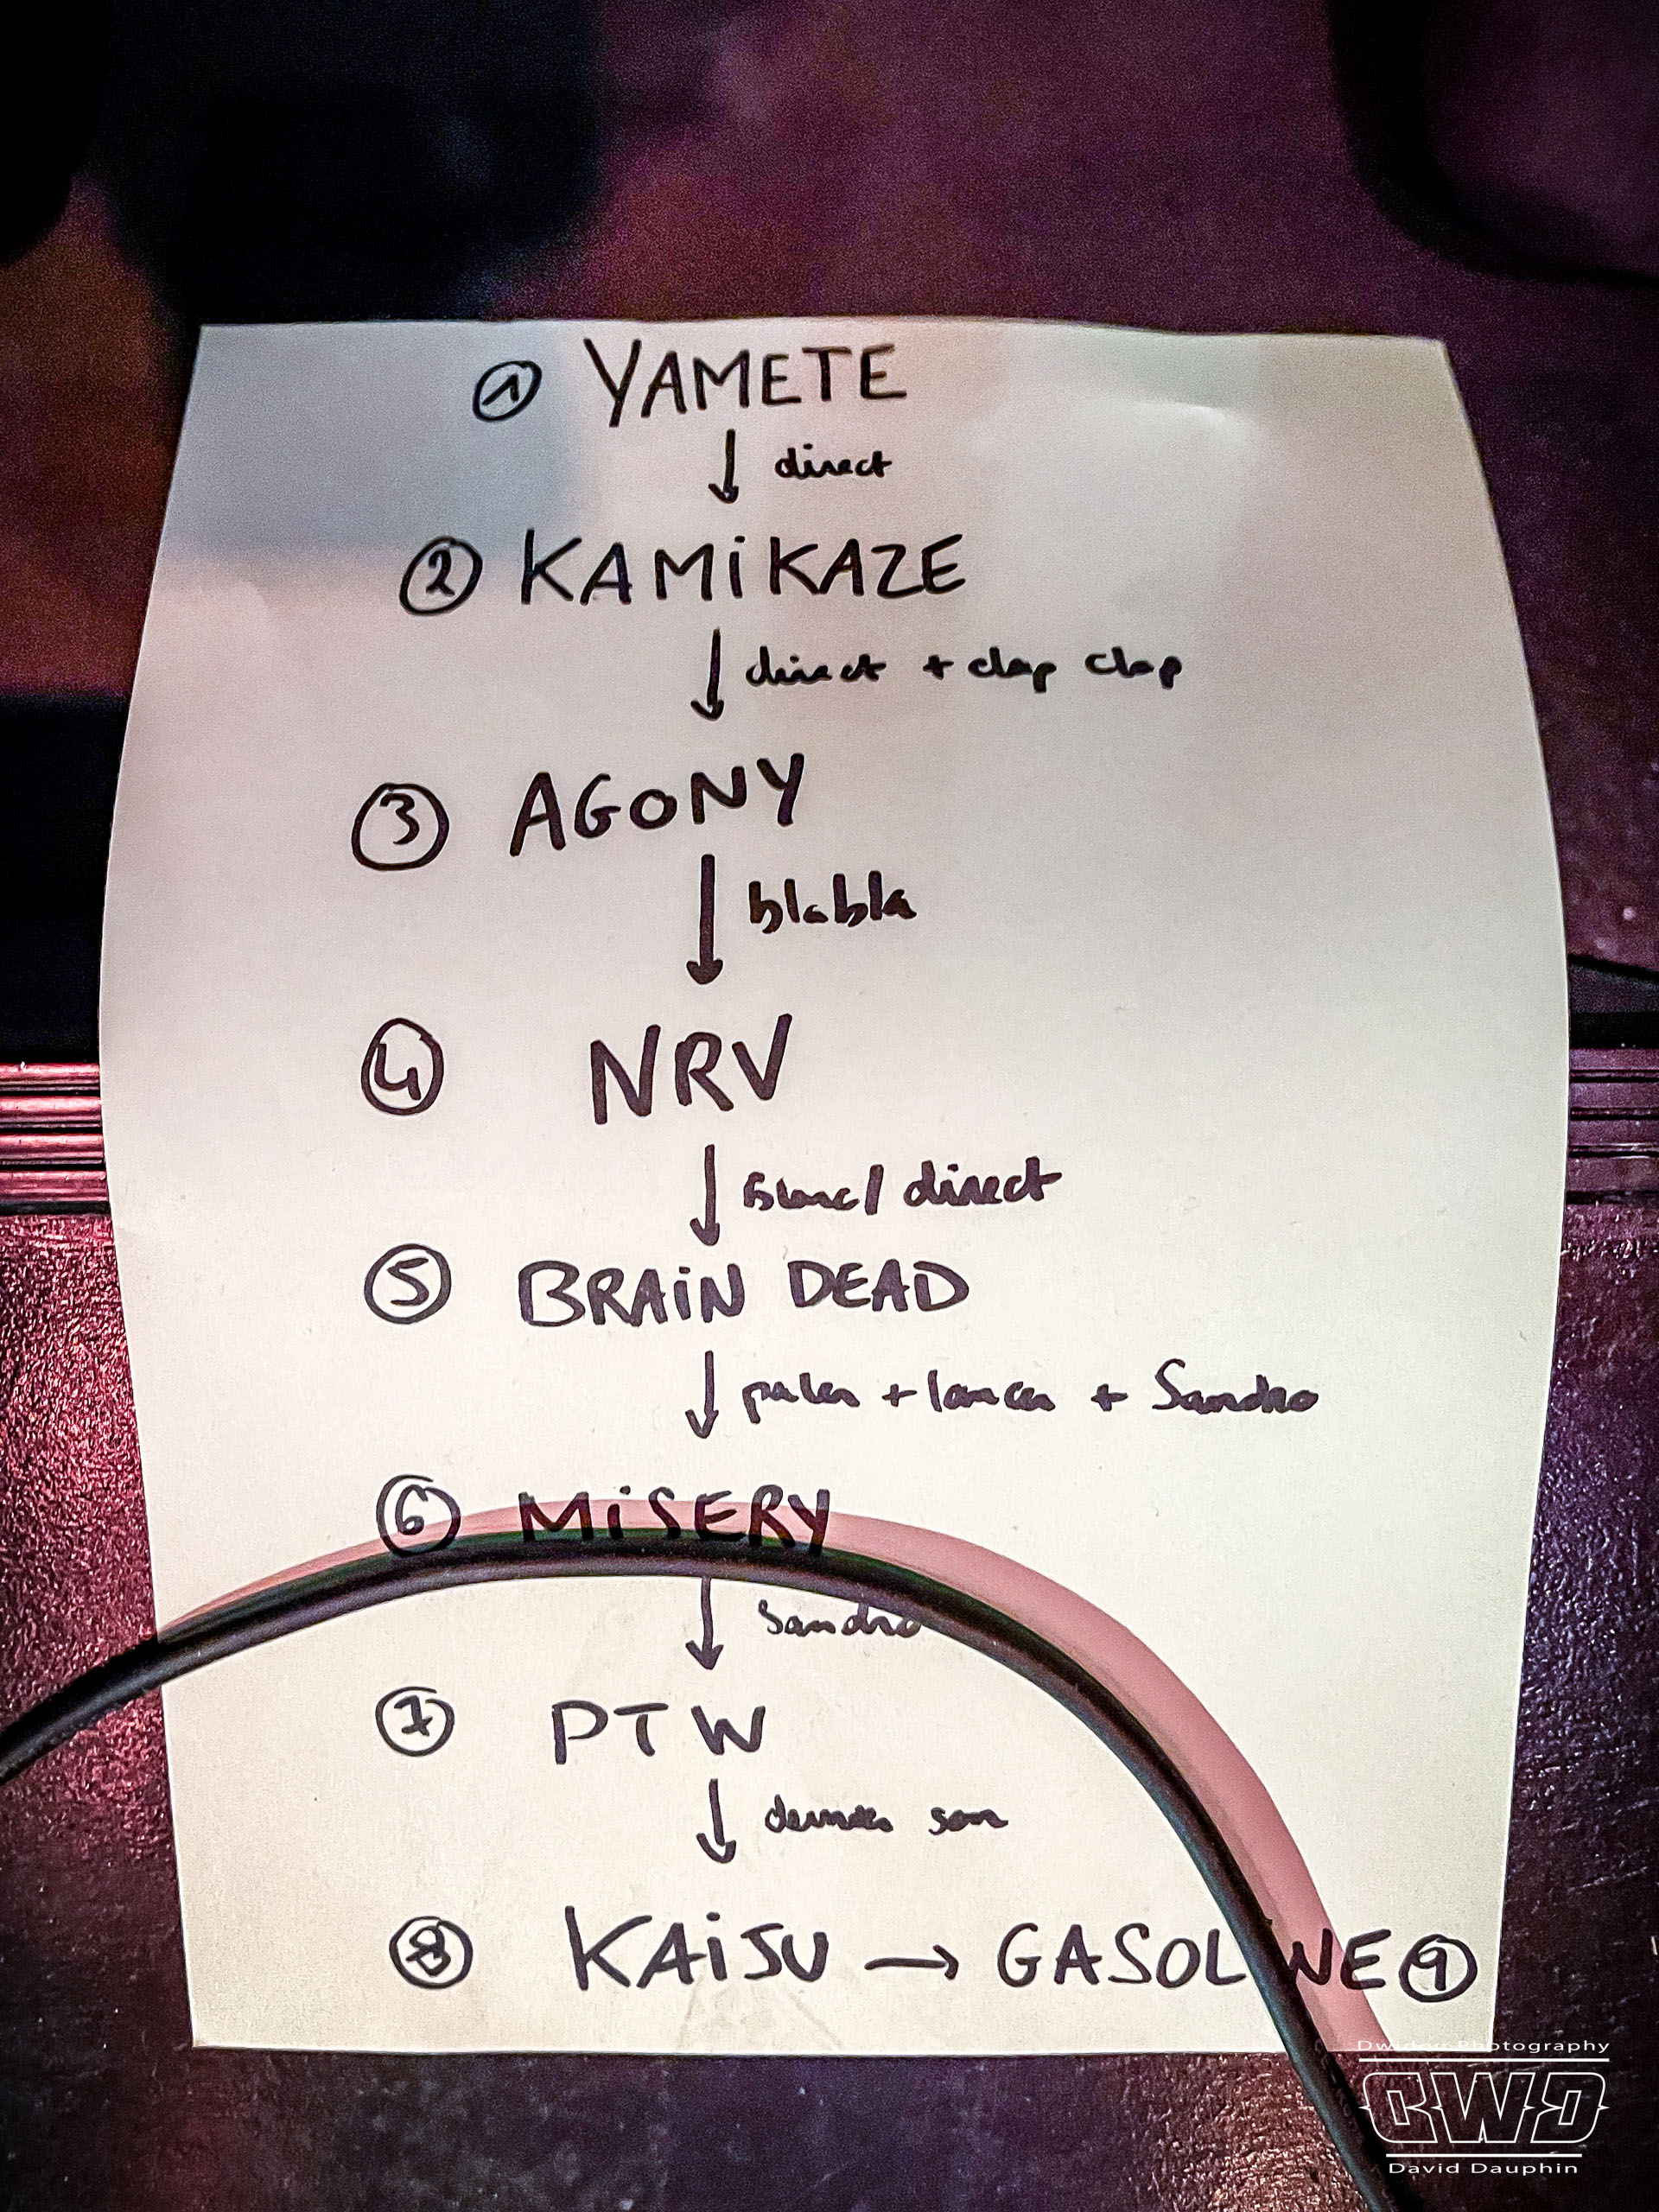 ① YAMETE
↓ direct
② KAMiKAZE
↓ direct + clap clap
③ AGONY
↓ blabla
④ NRV
↓ blanc/ direct
⑤ BRAiN DEAD
↓ parler + lancer + Sandro
⑥ MiSERY
↓ Sandro
⑦ PTW
↓ dernier son
⑧ KAiJU → GASOLINE ⑨
Photography
DWD
David Dauphin